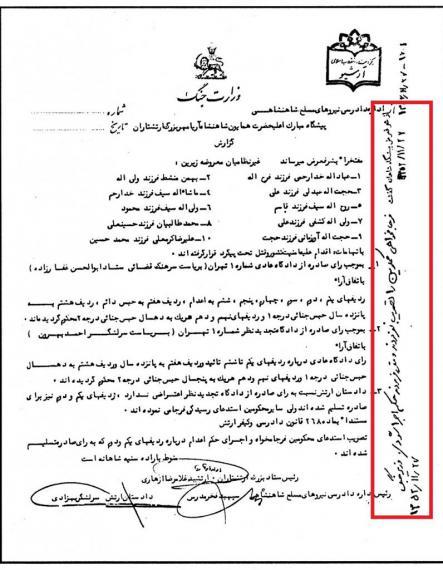 آرشیو
وزارت جنگ
شماره
تاریخ
اداره دادرسی نیروهای مسلح شاهنشاهی
پیشگاه مبارک اعلیحضرت همایون شاهنشاه آریامهر بزرگ ارتشتاران
گزارش
مفتخرا بشرفعرض میرساند غیرنظامیان معروضه زیرین :
۱ـ عباداله خدارحمی فرزند فرج اله ۲ـ بهمن منشط فرزند ولی اله
۳ـ حجت اله عبدلی فرزند علی ۴ـ ماشاءاله سیف فرزند خدارحم
۵ـ روح اله سیف فرزند قاسم ۶ـ ولی اله سیف فرزند محمود
۷ـ ولی اله کشفی فرزند علی ۸ـ محمد طالبیان فرزند حسینعلی
۹ـ حجت اله آورزمانی فرزند حجت ۱۰ـ علیرضا کرمعلی فرزند محمد حسین
باتهامات : اقدام علیه امنیت کشور و قتل تحت پیگرد قرار گرفته اند .
بموجب رای صادره از دادگاه عادی شماره ۱ تهران (بریاست سرهنگ قضائی ستاد ابوالحسن غفارزاده )
باتفاق آراء
ردیفهای یکم ، دوم ، سوم ، چهارم ، پنجم ، ششم به اعدام ، ردیف هفتم به حبس دائم ، ردیف هشتم به
پانزده سال حبس جنائی درجه ۱ و ردیفهای نهم و دهم هریک به ده سال حبس جنائی درجه ۲ محکوم گردیده اند .
بموجب رای صادره از دادگاه تجدید نظر شماره ۱ تهران ( بریاست سرلشگر احمد بهرون )
باتفاق آراء
رای دادگاه عادی درباره ردیفهای یکم تا ششم تائید و ردیف هفتم به پانزده سال و ردیف هشتم به ده سال
حبس جنائی درجه ۱ و ردیفهای نهم و دهم هریک به پنج سال حبس جنائی درجه ۲ محکوم گردیده اند .
دادستان ارتش نسبت به رای صادره از دادگاه تجدید نظر اعتراضی ندارد . ردیفهای یکم و دوم نیز برای
صادره تسلیم شده اند ولی سایر محکومین استدعای رسیدگی فرجامی نموده اند .
مستندا " بماده ۲۶۸ قانون دادرسی و کیفر ارتش
تصویب استدعای محکومین فرجامخواه و اجرای حکم اعدام درباره ردیفهای یکم و دوم که به رای صادره تسلیم
شده اند .
منوط باراده سنیه شاهانه است
رئیس ستاد بزرگ ارتشتاران ـ ارتشبد غلامرضا ازهاری
رئیس اداره دادرسی نیروهای مسلح شاهنشاهی سپهبد فخر مدرس دادستان ارتش سرلشگر بهزادی
۱۳۵۲/۱۱/۲۷